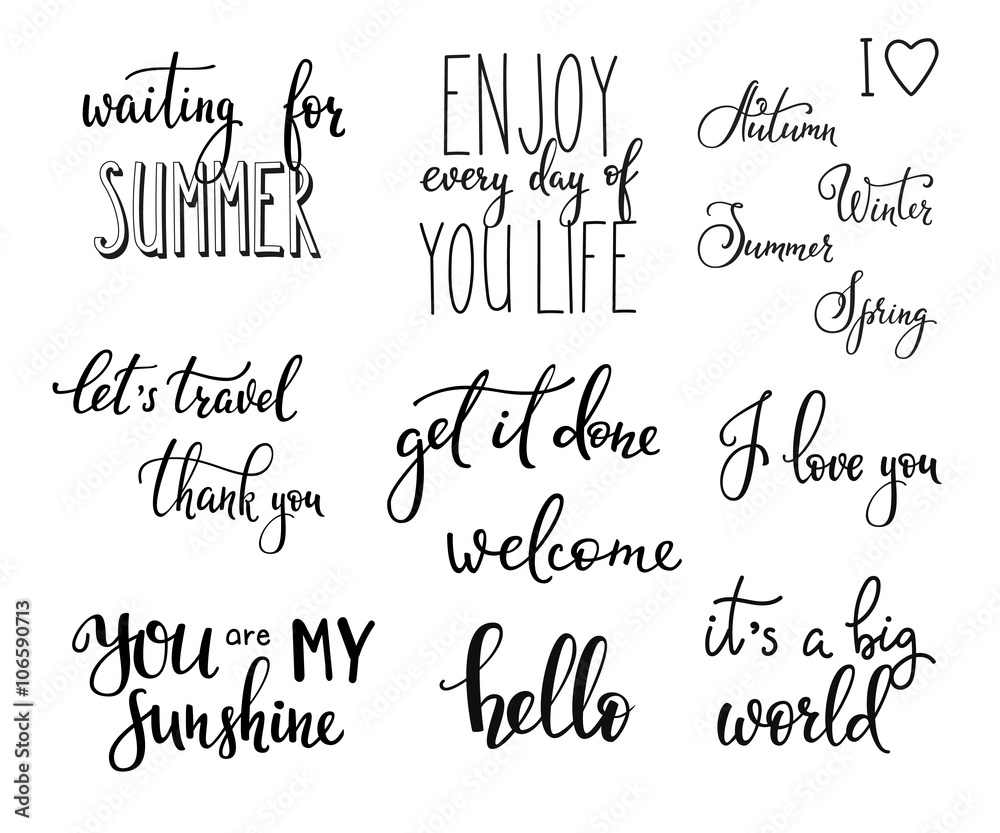 waiting for
SUMMER
ENJOY
every day of
YOU LIFE
I
Autumn
Winter
Summer
Spring
let's travel
thank you
get it done
welcome
I love you
you are MY
sunshine
hello
it's a big
world
Adobe Stock | #106590713